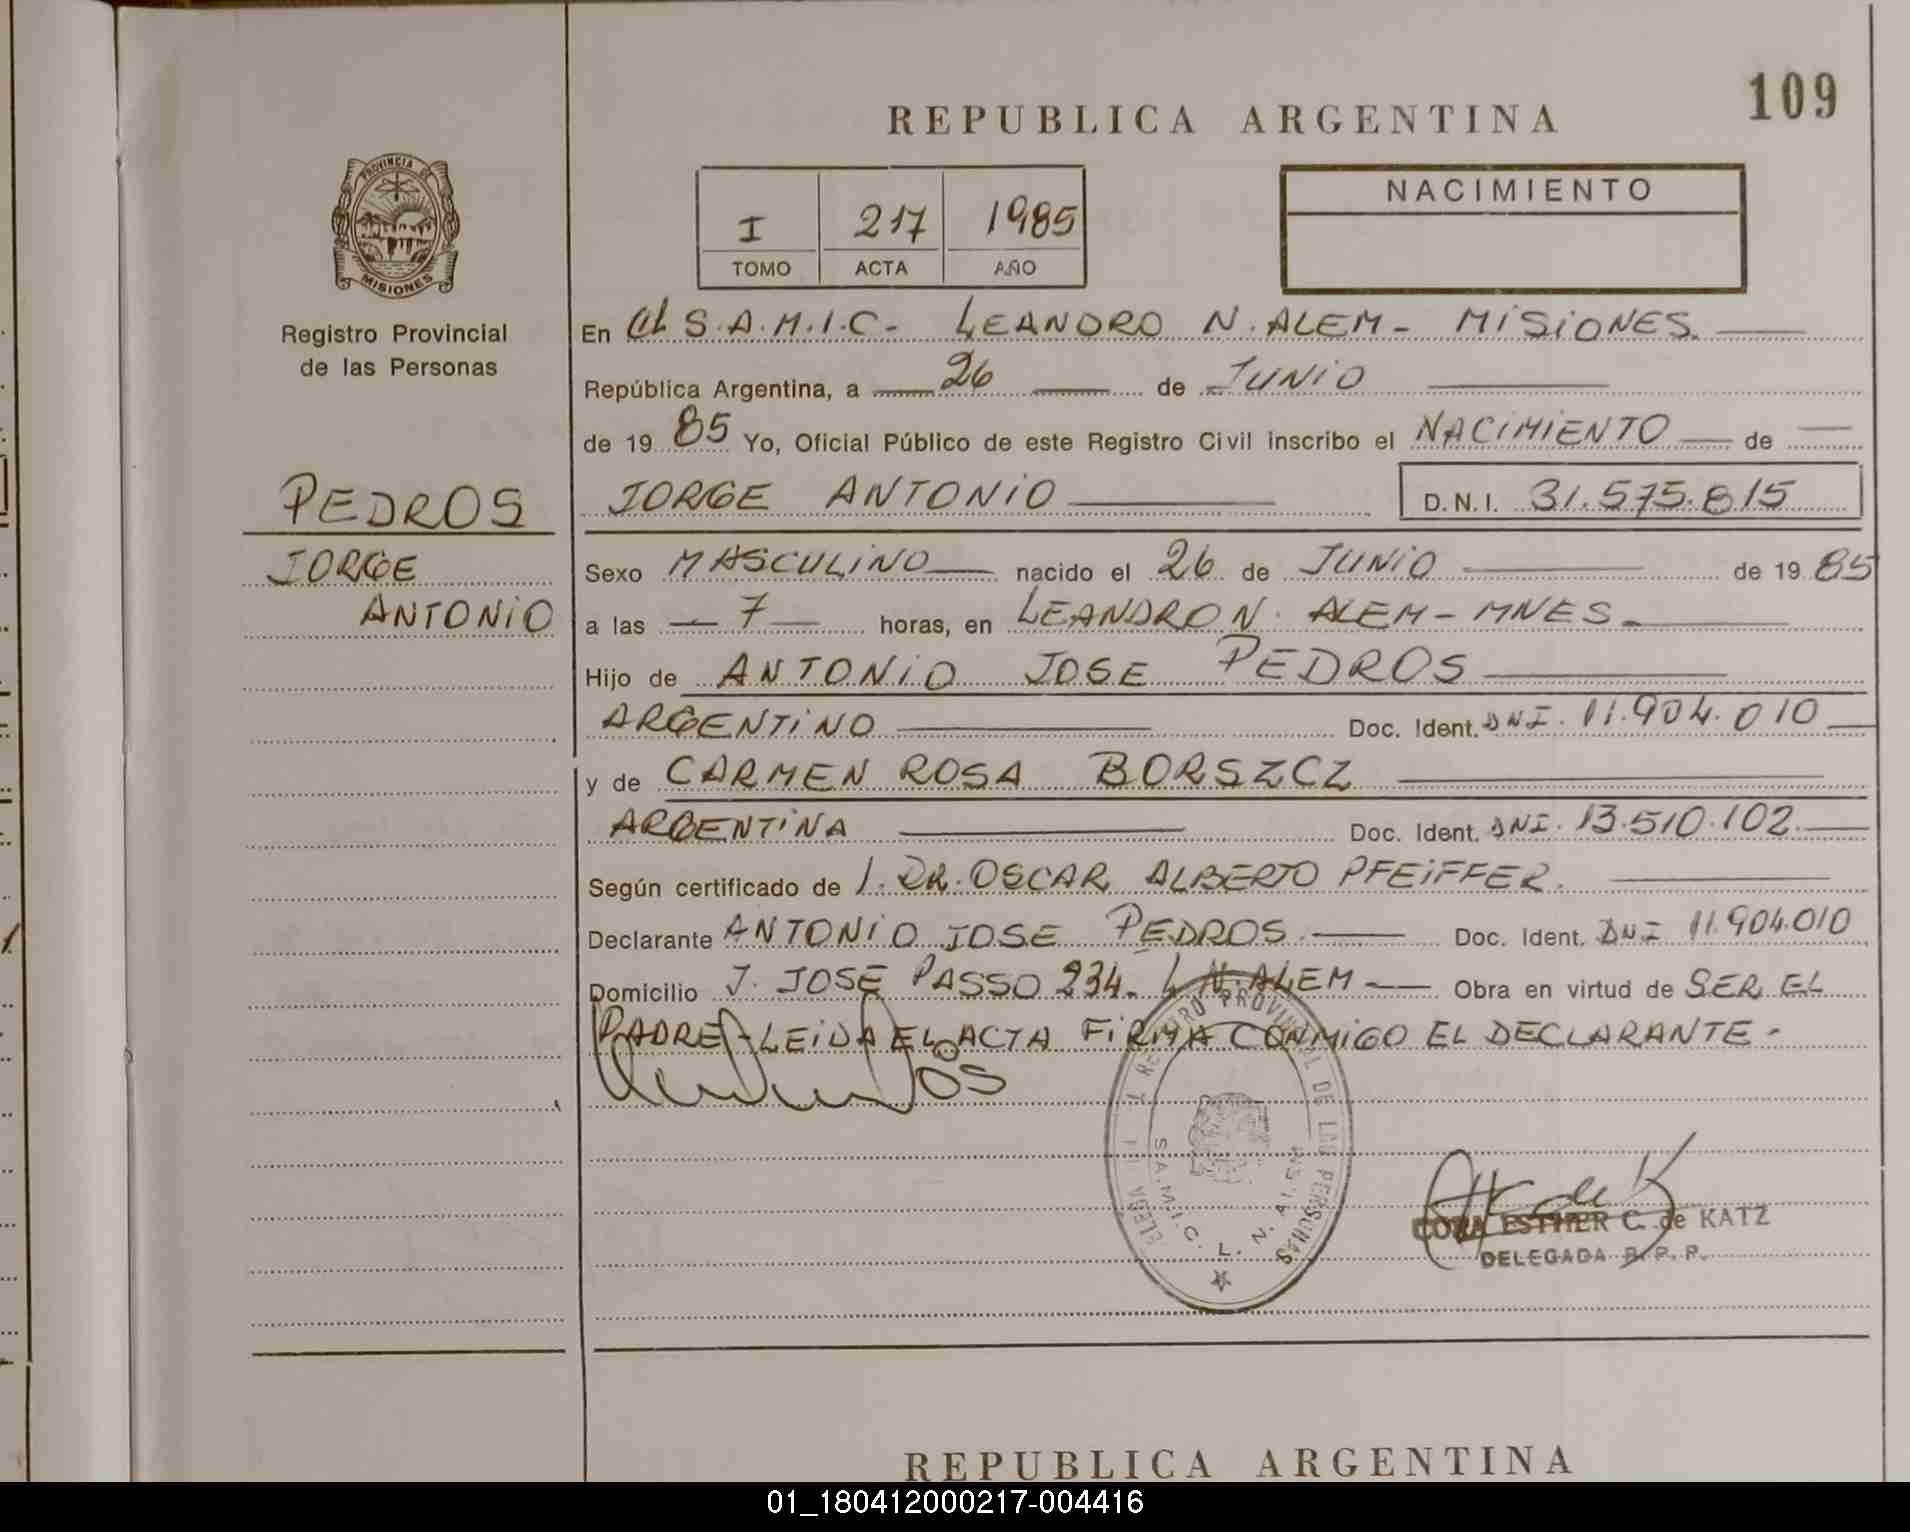 109
REPUBLICA ARGENTINA
PROVINCIA DE
MISIONES
Registro Provincial
de las Personas
I 217 1985
TOMO ACTA AÑO
NACIMIENTO
En el S.A.M.I.C- LEANDRO N. ALEM- MISIONES.
República Argentina, a 26 de JUNIO
de 19 85 Yo, Oficial Público de este Registro Civil inscribo el NACIMIENTO de
JORGE ANTONIO D.N.I. 31.575.815
PEDROS
JORGE
ANTONIO
Sexo MASCULINO nacido el 26 de JUNIO de 19 85
a las 7 horas, en LEANDRO N. ALEM- MNES-
Hijo de ANTONIO JOSE PEDROS
ARGENTINO Doc. Ident. DNI. 11.904.010
y de CARMEN ROSA BORSZCZ
ARGENTINA Doc. Ident. DNI. 13.510.102
Según certificado de DR. OSCAR ALBERTO PFEIFFER.
Declarante ANTONIO JOSE PEDROS. Doc. Ident. DNI 11.904.010
Domicilio J. JOSE PASSO 234- L.N. ALEM Obra en virtud de SER EL
PADRE-LEIDA EL ACTA FIRMA CONMIGO EL DECLARANTE-
REGISTRO PROVINCIAL DE LAS PERSONAS
S.A.M.I.C. L. N. ALEM
CORA ESTHER C. de KATZ
DELEGADA R. P. P.
REPUBLICA ARGENTINA
01_180412000217-004416